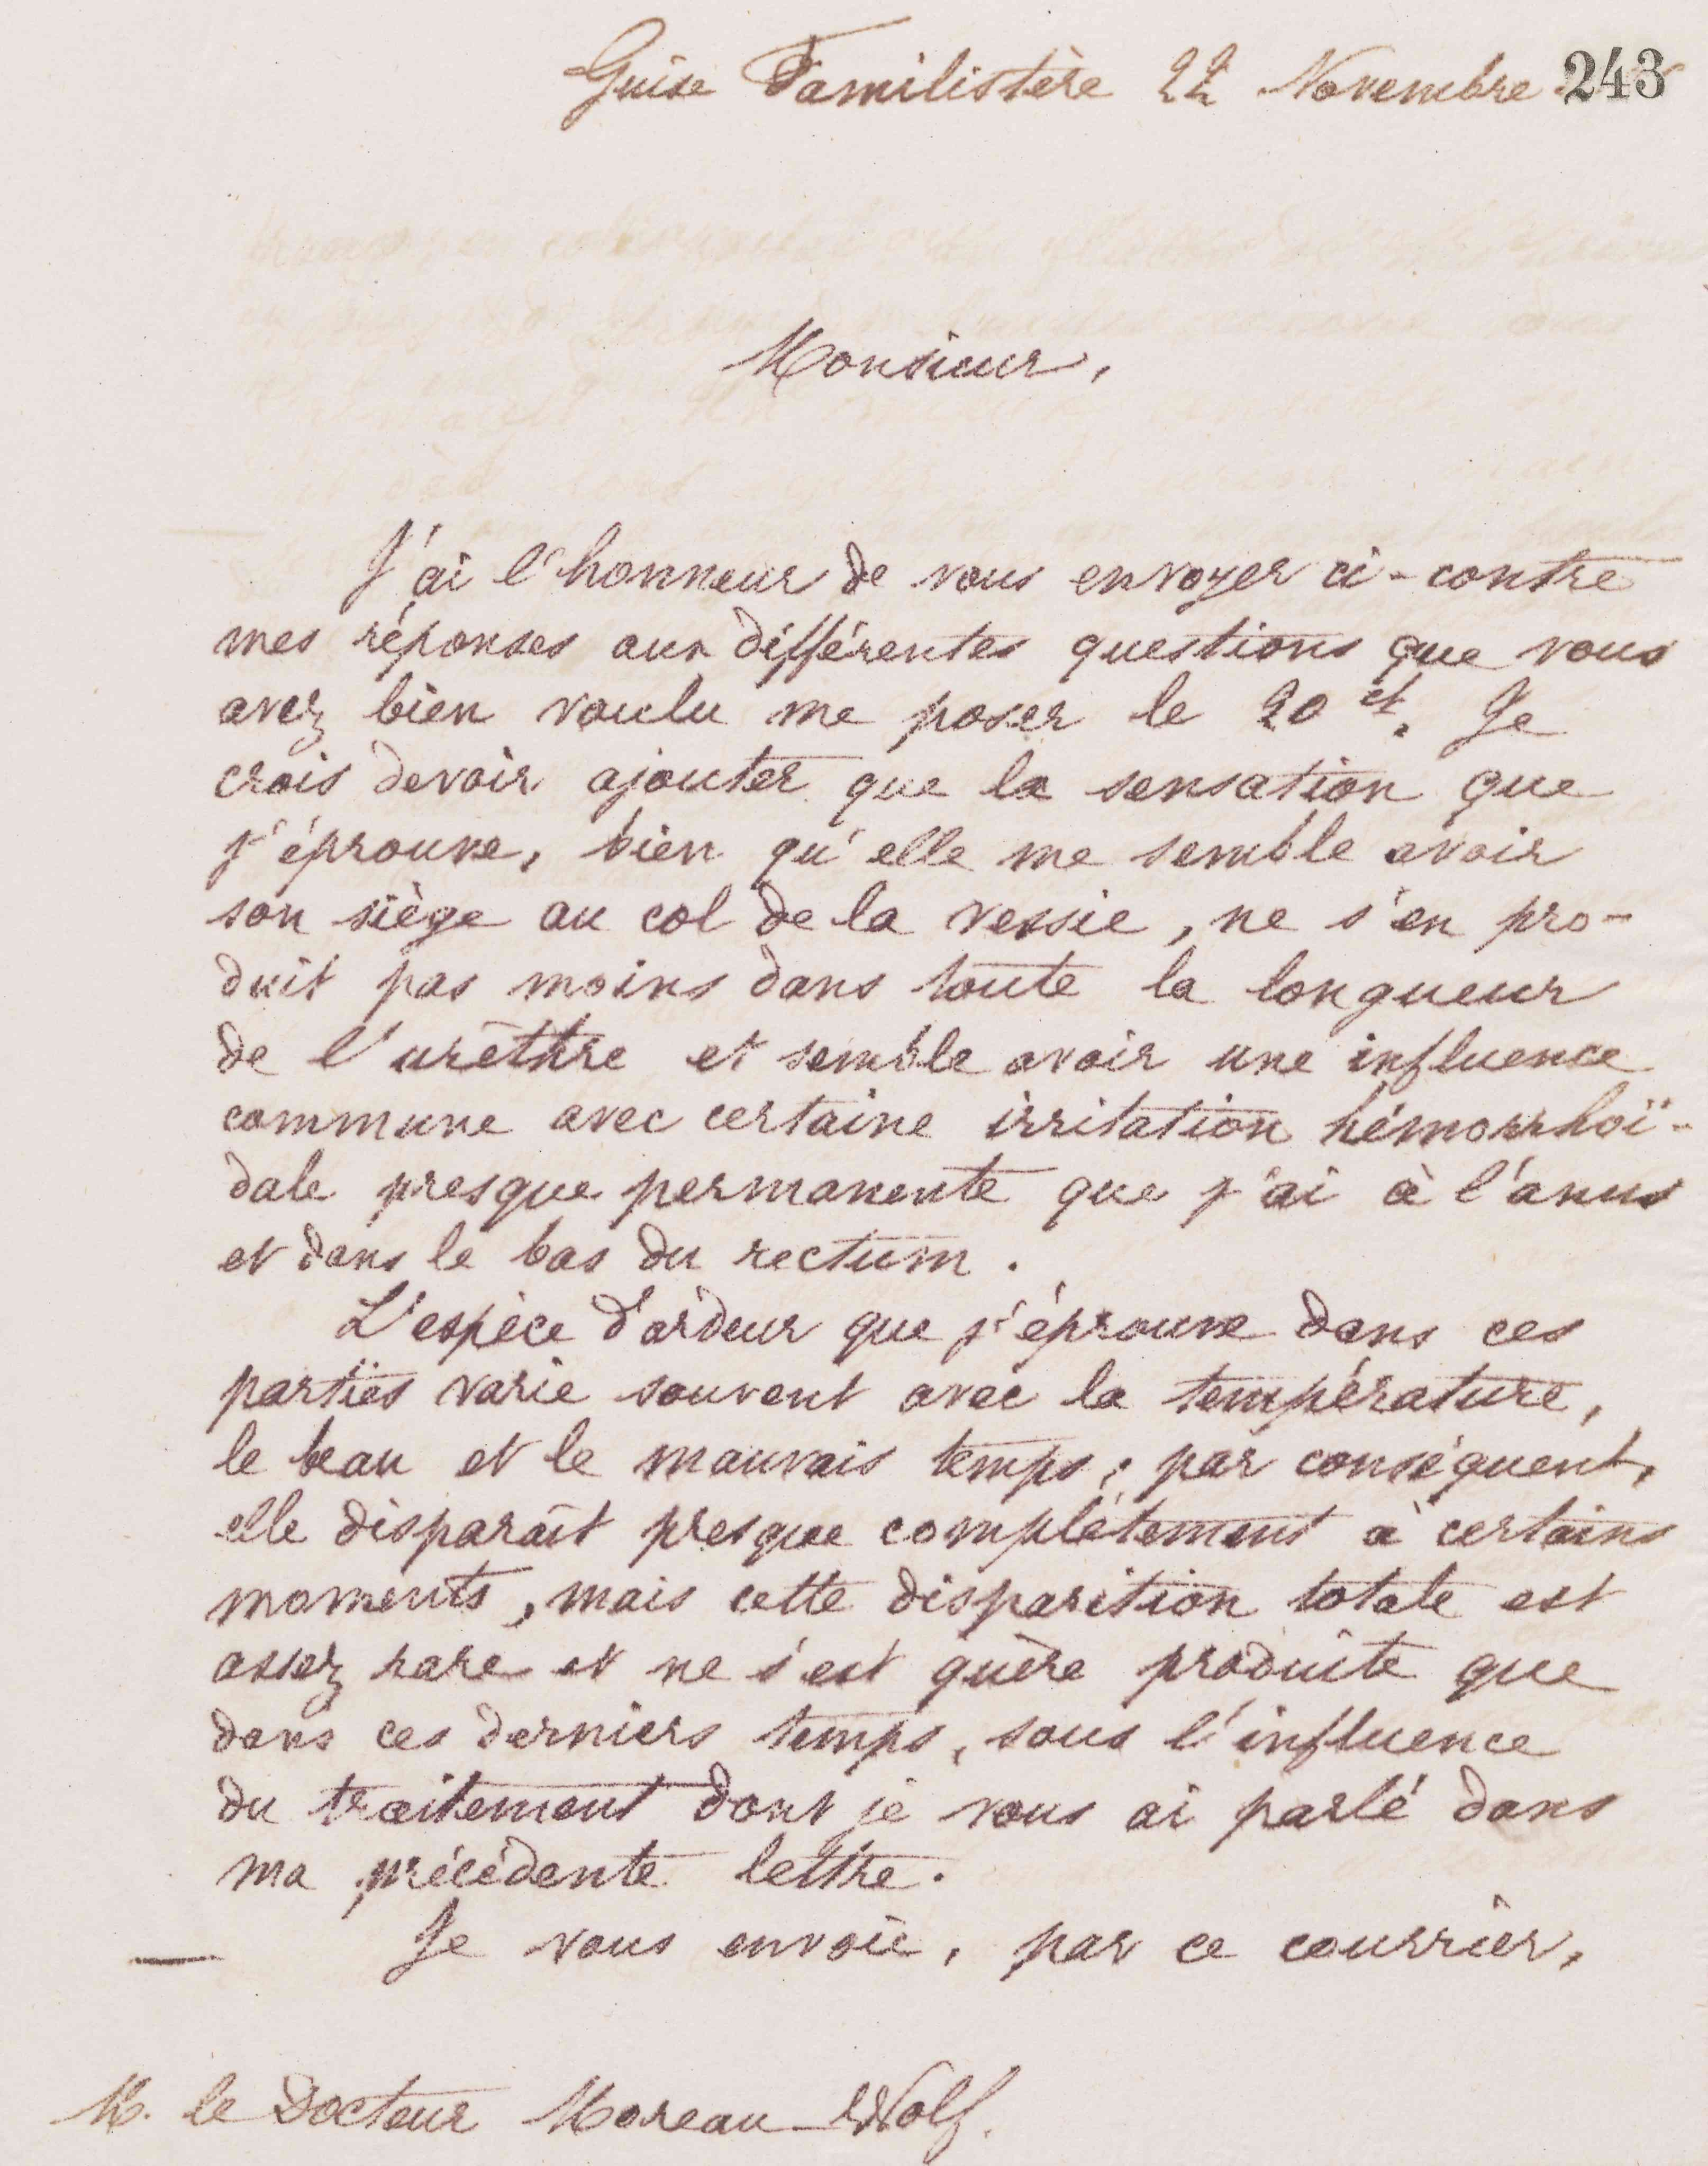 Guise Familistère 22 Novembre 243
Monsieur,
J'ai l'honneur de vous envoyer ci-contre
mes réponses aux différentes questions que vous
avez bien voulu me poser le 20 ct. Je
crois devoir ajouter que la sensation que
j'éprouve, bien qu'elle me semble avoir
son siège au col de la vessie, ne s'en pro-
duit pas moins dans toute la longueur
de l'urèthre et semble avoir une influence
commune avec certaine irritation hémorrhoï-
dale presque permanente que j'ai à l'anus
et dans le bas du rectum.
L'espèce d'ardeur que j'éprouve dans ces
parties varie souvent avec la température,
le beau et le mauvais temps; par conséquent,
elle disparaît presque complètement à certains
moments, mais cette disparition totale est
assez rare et ne s'est guère produite que
dans ces derniers temps, sous l'influence
du traitement dont je vous ai parlé dans
ma précédente lettre.
Je vous envoie, par ce courrier,
M. le Docteur Moreau-Wolf.